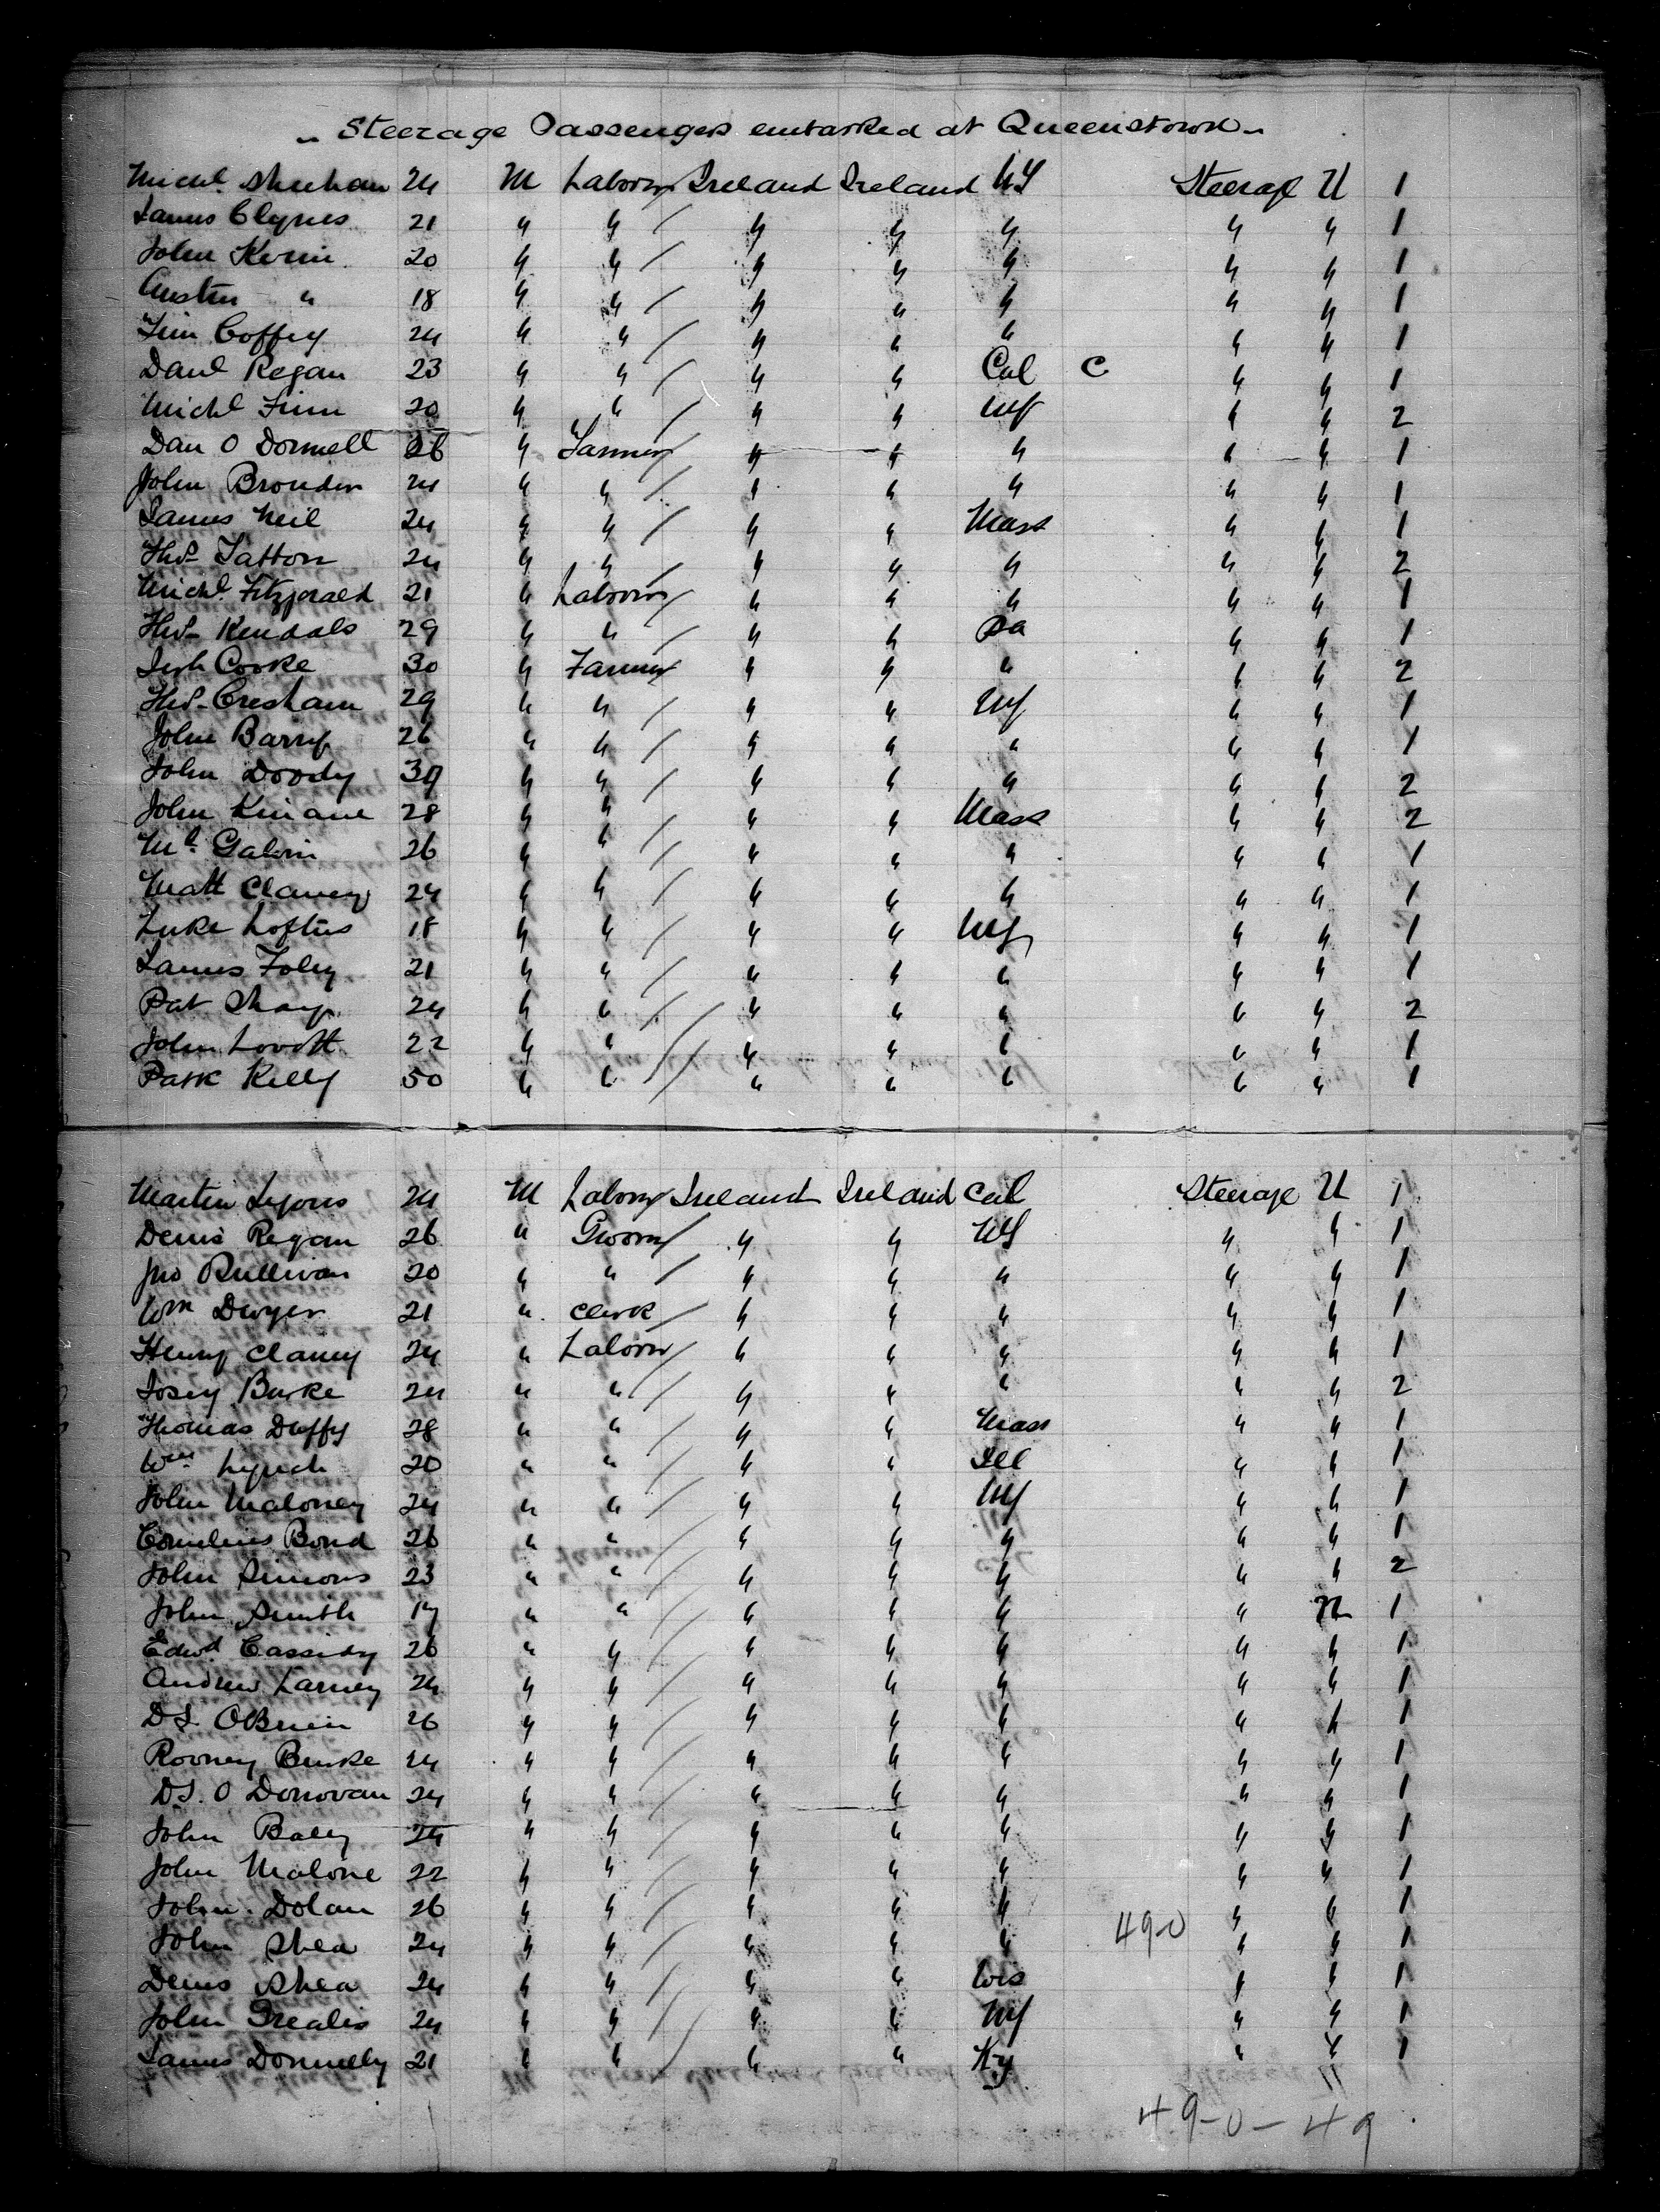 Steerage Passengers embarked at Queenstown
Michl. Sheehan 24 M Laborer Ireland Ireland NY Steerage U 1
James Clynes 21 " " " " " " " 1
John Kerin 20 " " " " " " " 1
Austin " 18 " " " " " " " 1
Tim Coffey 24 " " " " " " " 1
Danl Regan 23 " " " " Cal C " " 1
Michl Finn 20 " " " " NY " " 2
Dan O Donnell 26 " Farmer " " " " " 1
John Brouder 24 " " " " " " " 1
James Neil 24 " " " " Mass " " 1
Thos Tatton 24 " " " " " " " 2
Michl. Fitzgerald 21 " Laborer " " " " " 1
Thos Kendals 29 " " " " Pa " " 1
Cooke 30 " Farmer " " " " " 2
Thos Cresham 29 " " " " NY " " 1
John Barry 26 " " " " " " " 1
John Doody 30 " " " " " " " 2
John Kinane 28 " " " " Mass " " 2
Ml. Galvin 26 " " " " " " " 1
Matt Clancy 24 " " " " " " " 1
Luke Loftus 18 " " " " NY " " 1
James Foley 21 " " " " " " " 1
Pat 24 " " " " " " " 2
John 22 " " " " " " " 1
Patk Kelly 50 " " " " " " " 1
Martin Lyons 24 M Laborer Ireland Ireland Cal Steerage U 1
Denis Regan 26 " Groom " " NY " " 1
Jno Sullivan 20 " " " " " " " 1
Wm Dwyer 21 " Clerk " " " " " 1
Henry Clancy 24 " Laborer " " " " " 1
Burke 24 " " " " " " " 2
Thomas Duffy 28 " " " " Mass " " 1
Wm Lynch 20 " " " " Ill " " 1
John Maloney 24 " " " " NY " " 1
Cornelius Bond 26 " " " " " " " 1
John Simons 23 " " " " " " " 2
John Smith 17 " " " " " " 1
Edwd Cassidy 26 " " " " " " " 1
Andrew Larney 24 " " " " " " " 1
O'Brien 26 " " " " " " " 1
Rooney Burke 24 " " " " " " " 1
O Donovan 24 " " " " " " " 1
John Baley 24 " " " " " " " 1
John Malone 22 " " " " " " " 1
John Dolan 26 " " " " " " " 1
John Shea 24 " " " " " 49-0 " " 1
Denis Shea 24 " " " " Wis " " 1
John Grealis 24 " " " " NY " " 1
James Donnelly 21 " " " " Ky " " 1
49-0-49